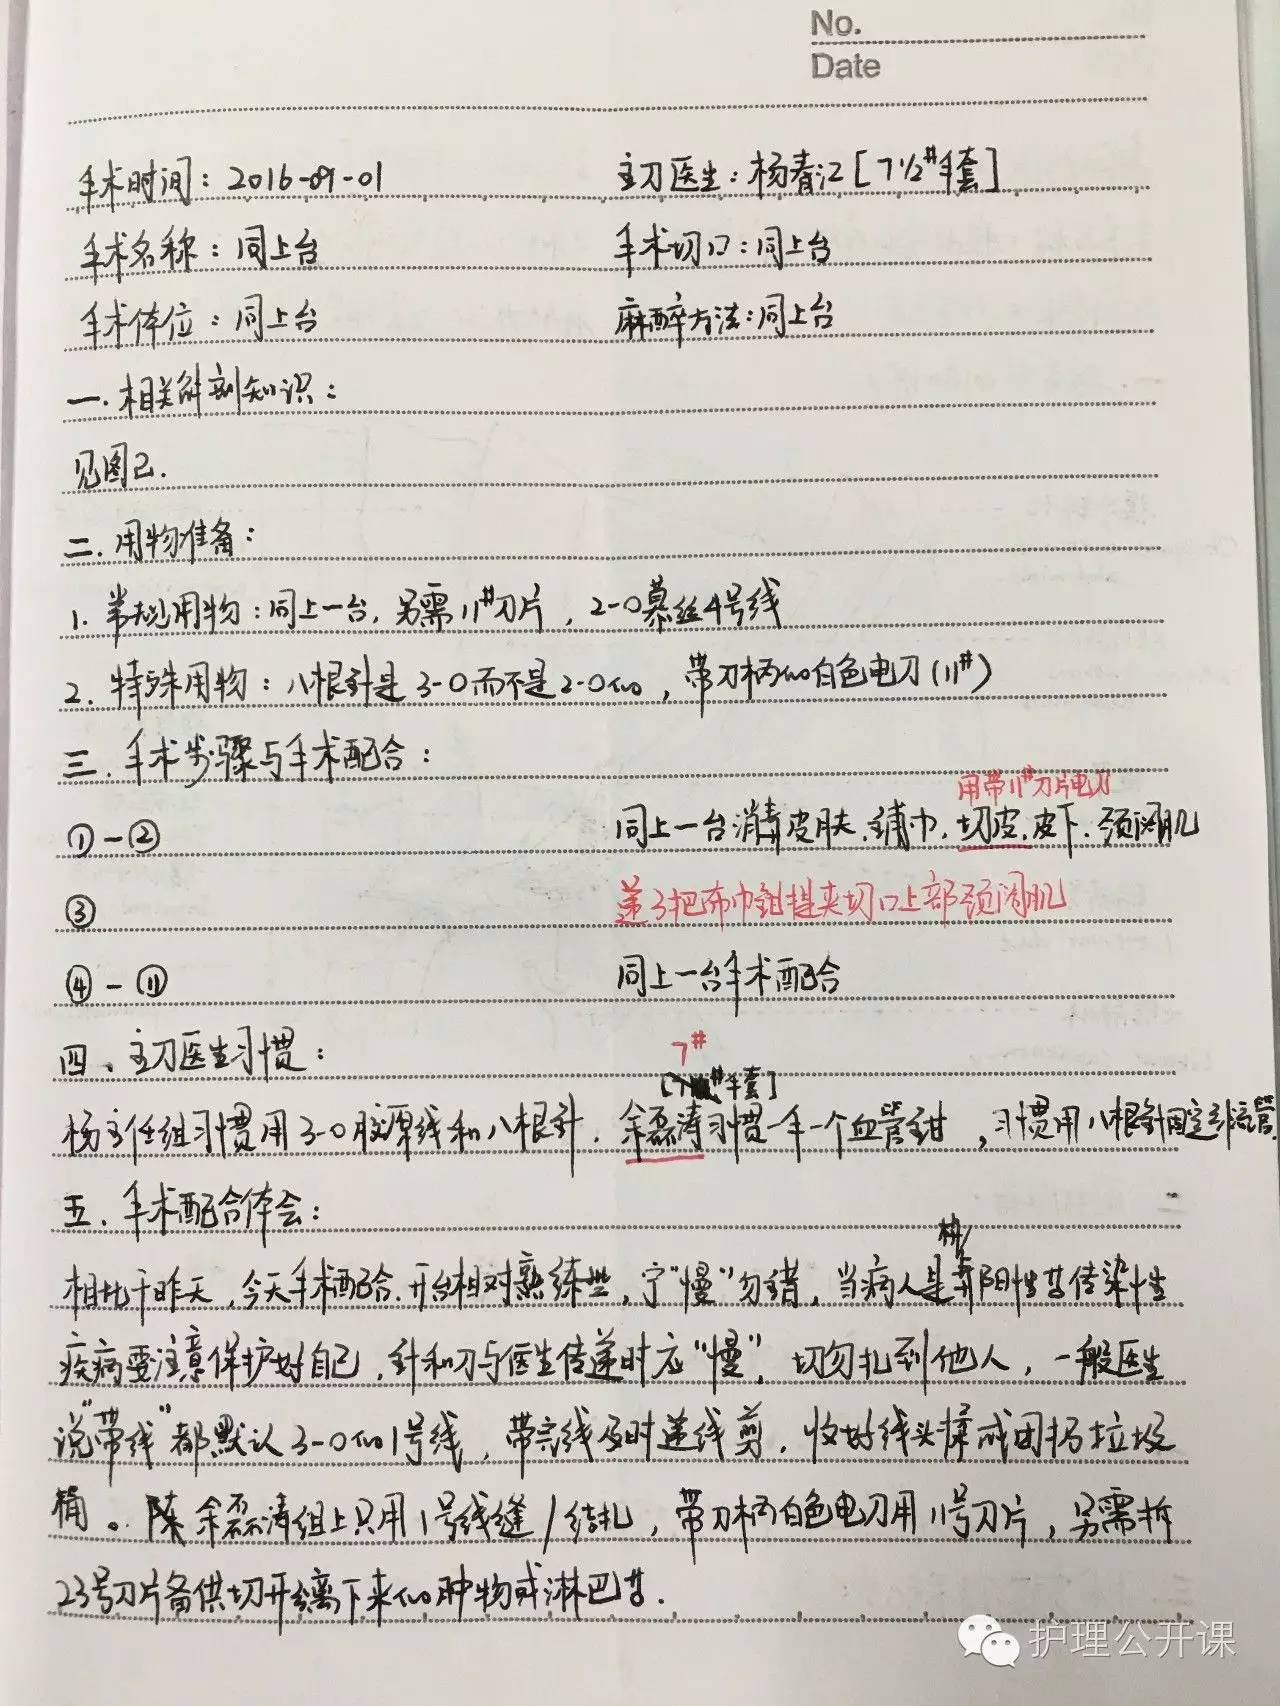 No.
Date
手术时间：2016-09-01 主刀医生：杨春江［7 1/2#手套］
手术名称：同上台 手术切口：同上台
手术体位：同上台 麻醉方法：同上台
一.相关解剖知识：
见图2.
二.用物准备：
1. 常规用物：同上一台，另需11#刀片，2-0慕丝4号线
2. 特殊用物：八根针是3-0而不是2-0的，带刀柄的白色电刀(11#)
三.手术步骤与手术配合：
用带11#刀片电刀
①-② 同上一台消毒皮肤.铺巾.切皮.皮下.颈阔肌
③ 递3把布巾钳提夹切口上部颈阔肌
④-⑪ 同上一台手术配合
四、主刀医生习惯：
7#
[#手套]
杨主任组习惯用3-0胶原线和八根针.余磊涛习惯一手一个血管钳，习惯用八根针固定引流管.
五.手术配合体会：
相比于昨天，今天手术配合.开台相对熟练些，宁“慢”勿错，当病人是梅阳性等传染性
疾病要注意保护好自己，针和刀与医生传递时应“慢”，切勿扎到他人，一般医生
说“带线”都默认3-0的1号线，带完线及时递线剪.收好线头揉成团扔垃圾
桶。余磊涛组上只用1号线缝/结扎，带刀柄白色电刀用11号刀片，另需拆
23号刀片备供切开离下来的肿物或淋巴等.
护理公开课